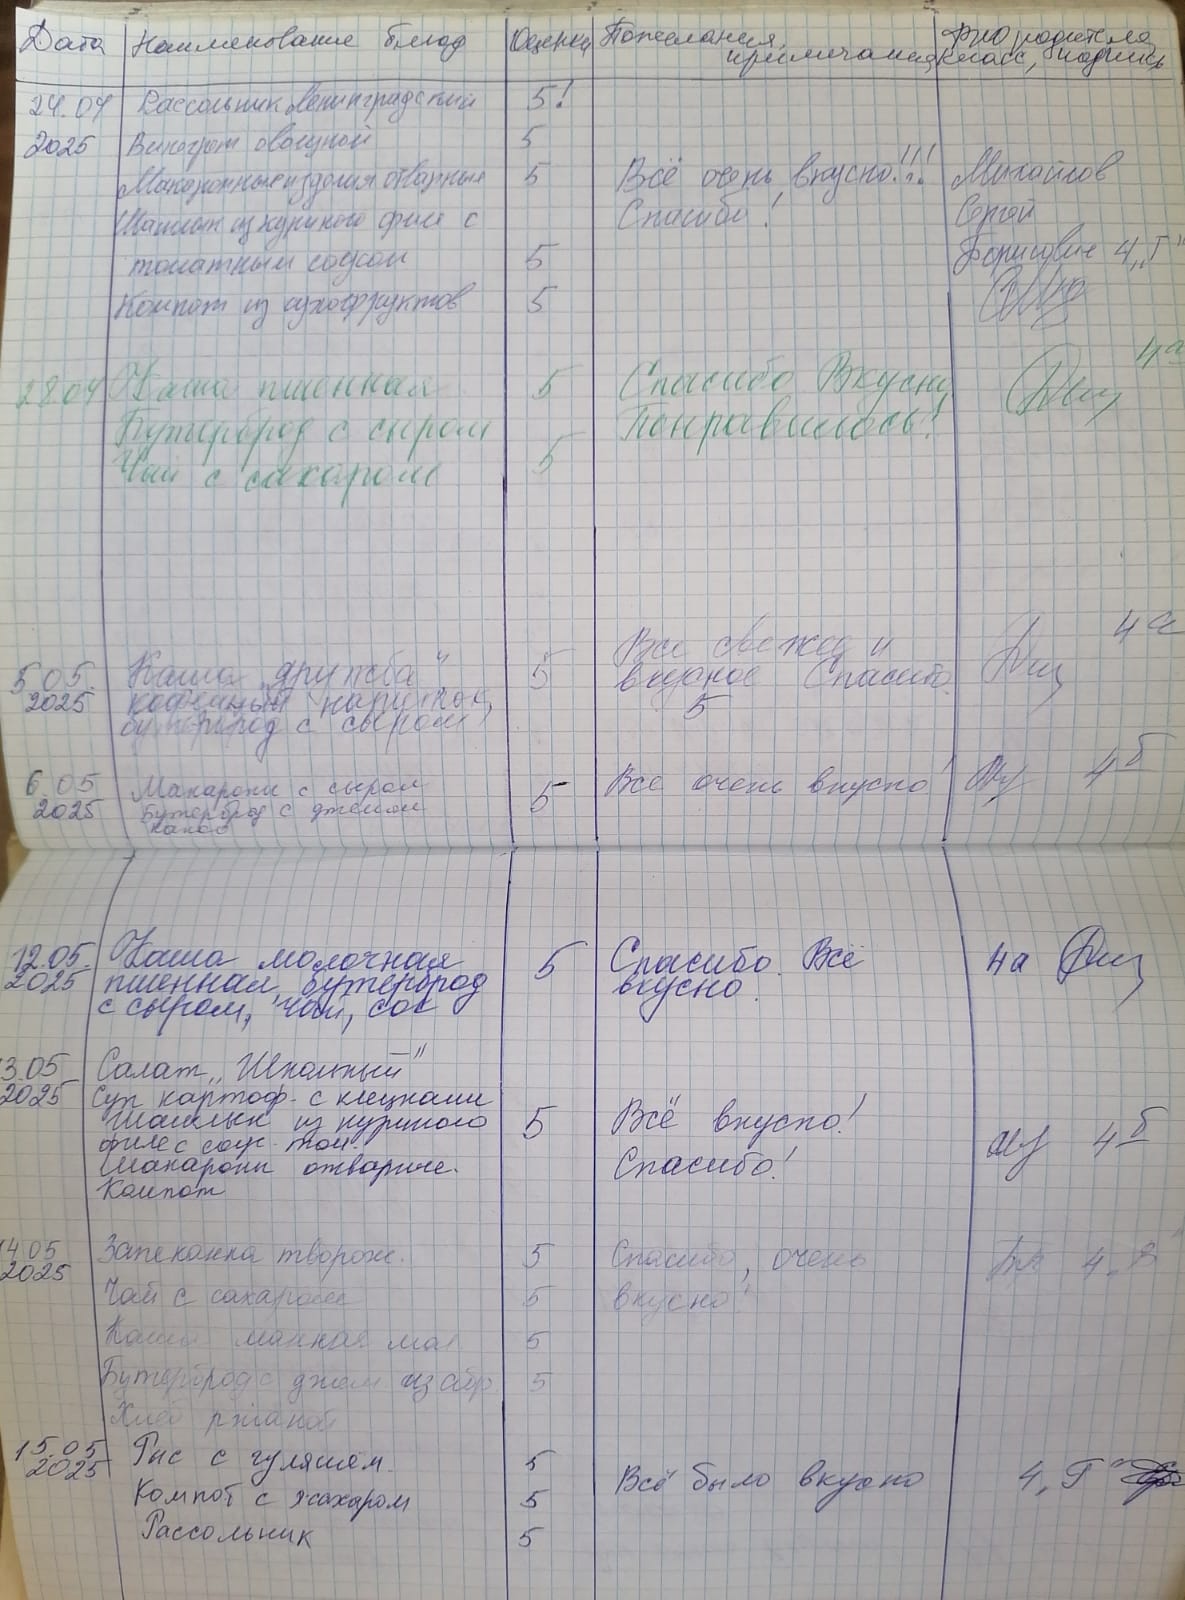 Дата Наименование блюд Оценка Пожелания, примечания ФИО родителя класс, подпись
24.04 Рассольник Ленинградский 5!
2025 Винегрет овощной 5
Макаронные изделия отварные 5 Всё очень вкусно!!! Михайлов
Шашлык из куриного филе с Спасибо! Сергей
томатным соусом 5 Борисович 4 „Г"
Компот из сухофруктов 5
28.04 Каша пшенная 5 Спасибо Вкусно, 4а
Бутерброд с сыром Понравилось!
Чай с сахаром 5
Все свежее и 4а
5.05. Каша „дружба" 5 вкусное Спасибо.
2025 кофейный напиток, 5
бутерброд с сыром
6.05 Макароны с сыром 5 Все очень вкусно! 4б
2025 Бутерброд с джемом
какао
12.05. Каша молочная 5 Спасибо. Всё 4а
2025 пшенная, бутерброд вкусно.
с сыром, чай, сок
3.05 Салат „Школьный"
2025 Суп картоф. с клецками
Шашлык из куриного 5 Всё вкусно! 4б
филе с соус. том.
Макароны отварные. Спасибо!
Компот
4.05 Запеканка творож. 5 Спасибо, очень 4 „В"
2025 Чай с сахаром 5 вкусно!
Каша манная мол 5
Бутерброд с джем из абр. 5
Хлеб ржаной
15.05 Рис с гуляшем. 5
2025 Всё было вкусно 4 „Г"
Компот с сахаром 5
Рассольник 5